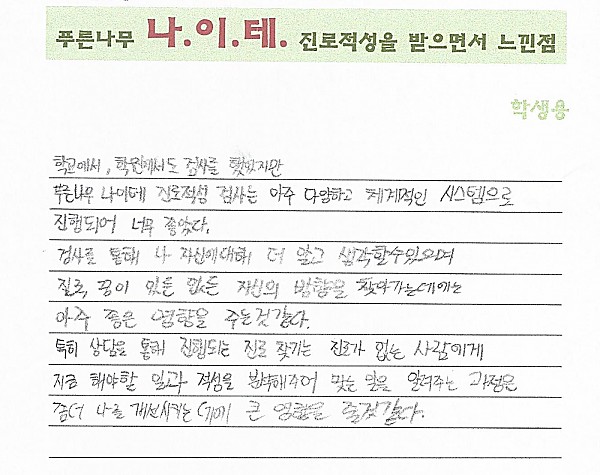 푸른나무 나.이.테. 진로적성을 받으면서 느낀점
학생용
학교에서, 학원에서도 검사를 했었지만
푸른나무 나이테 진로적성 검사는 아주 다양하고 체계적인 시스템으로
진행되어 너무 좋았다.
검사를 통해 나 자신에대해 더 알고 생각할수있으며
진로, 꿈이 있든 없든 자신의 방향을 찾아가는데에는
아주 좋은 영향을 주는것같다.
특히 상담을 통해 진행되는 진로 찾기는 진로가 없는 사람에게
지금 해야할 일과 적성을 파악해주어 맞는 일을 알려주는 과정은
좀더 나를 개선시키는 데에 큰 영향을 줄것같다.